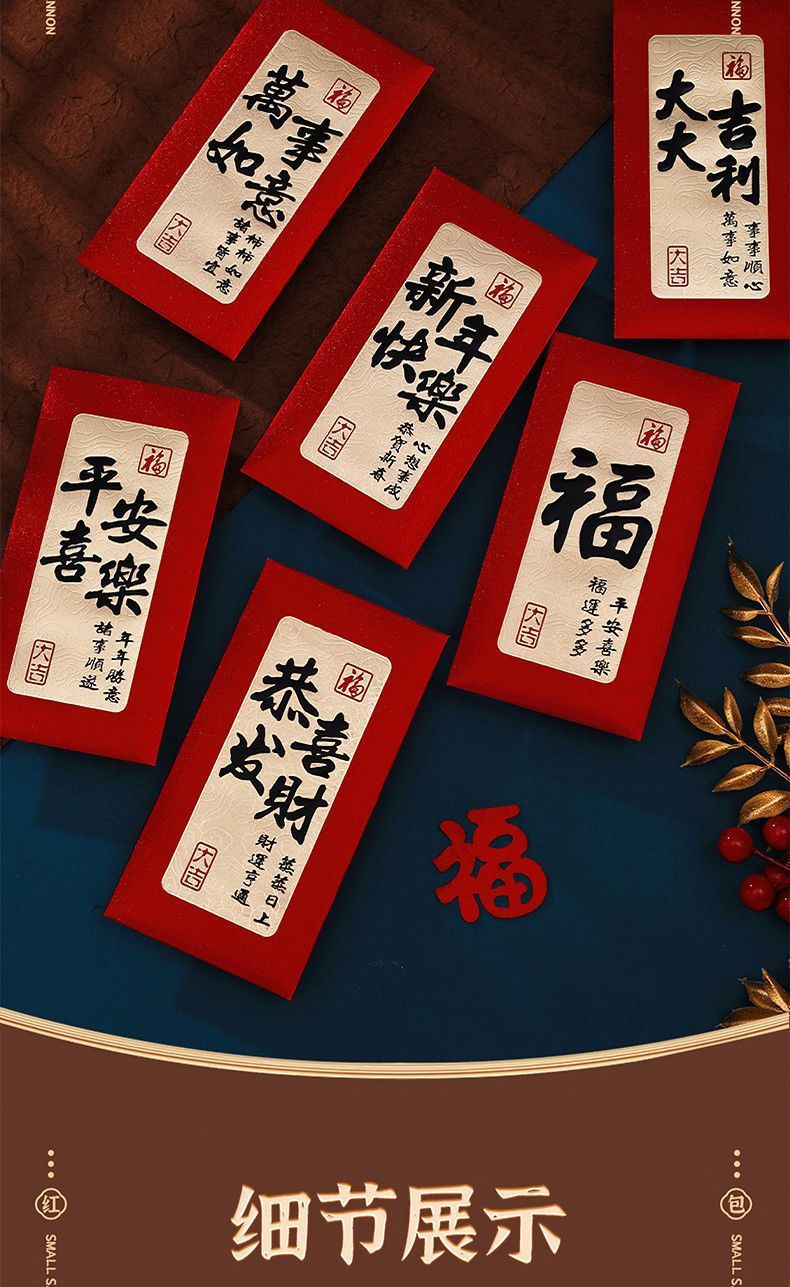 NNON
NNON
福
萬事
如意
柿柿如意
諸事皆宜
大吉
福
新年
快樂
心想事成
恭贺新春
大吉
福
吉利
大大
事事順心
萬事如意
大吉
福
平安
喜樂
年年勝意
諸事順遂
大吉
福
福
平安喜樂
福運多多
大吉
福
恭喜
发財
蒸蒸日上
財運亨通
大吉
福
红
包
细节展示
SMALL S
SMALL S